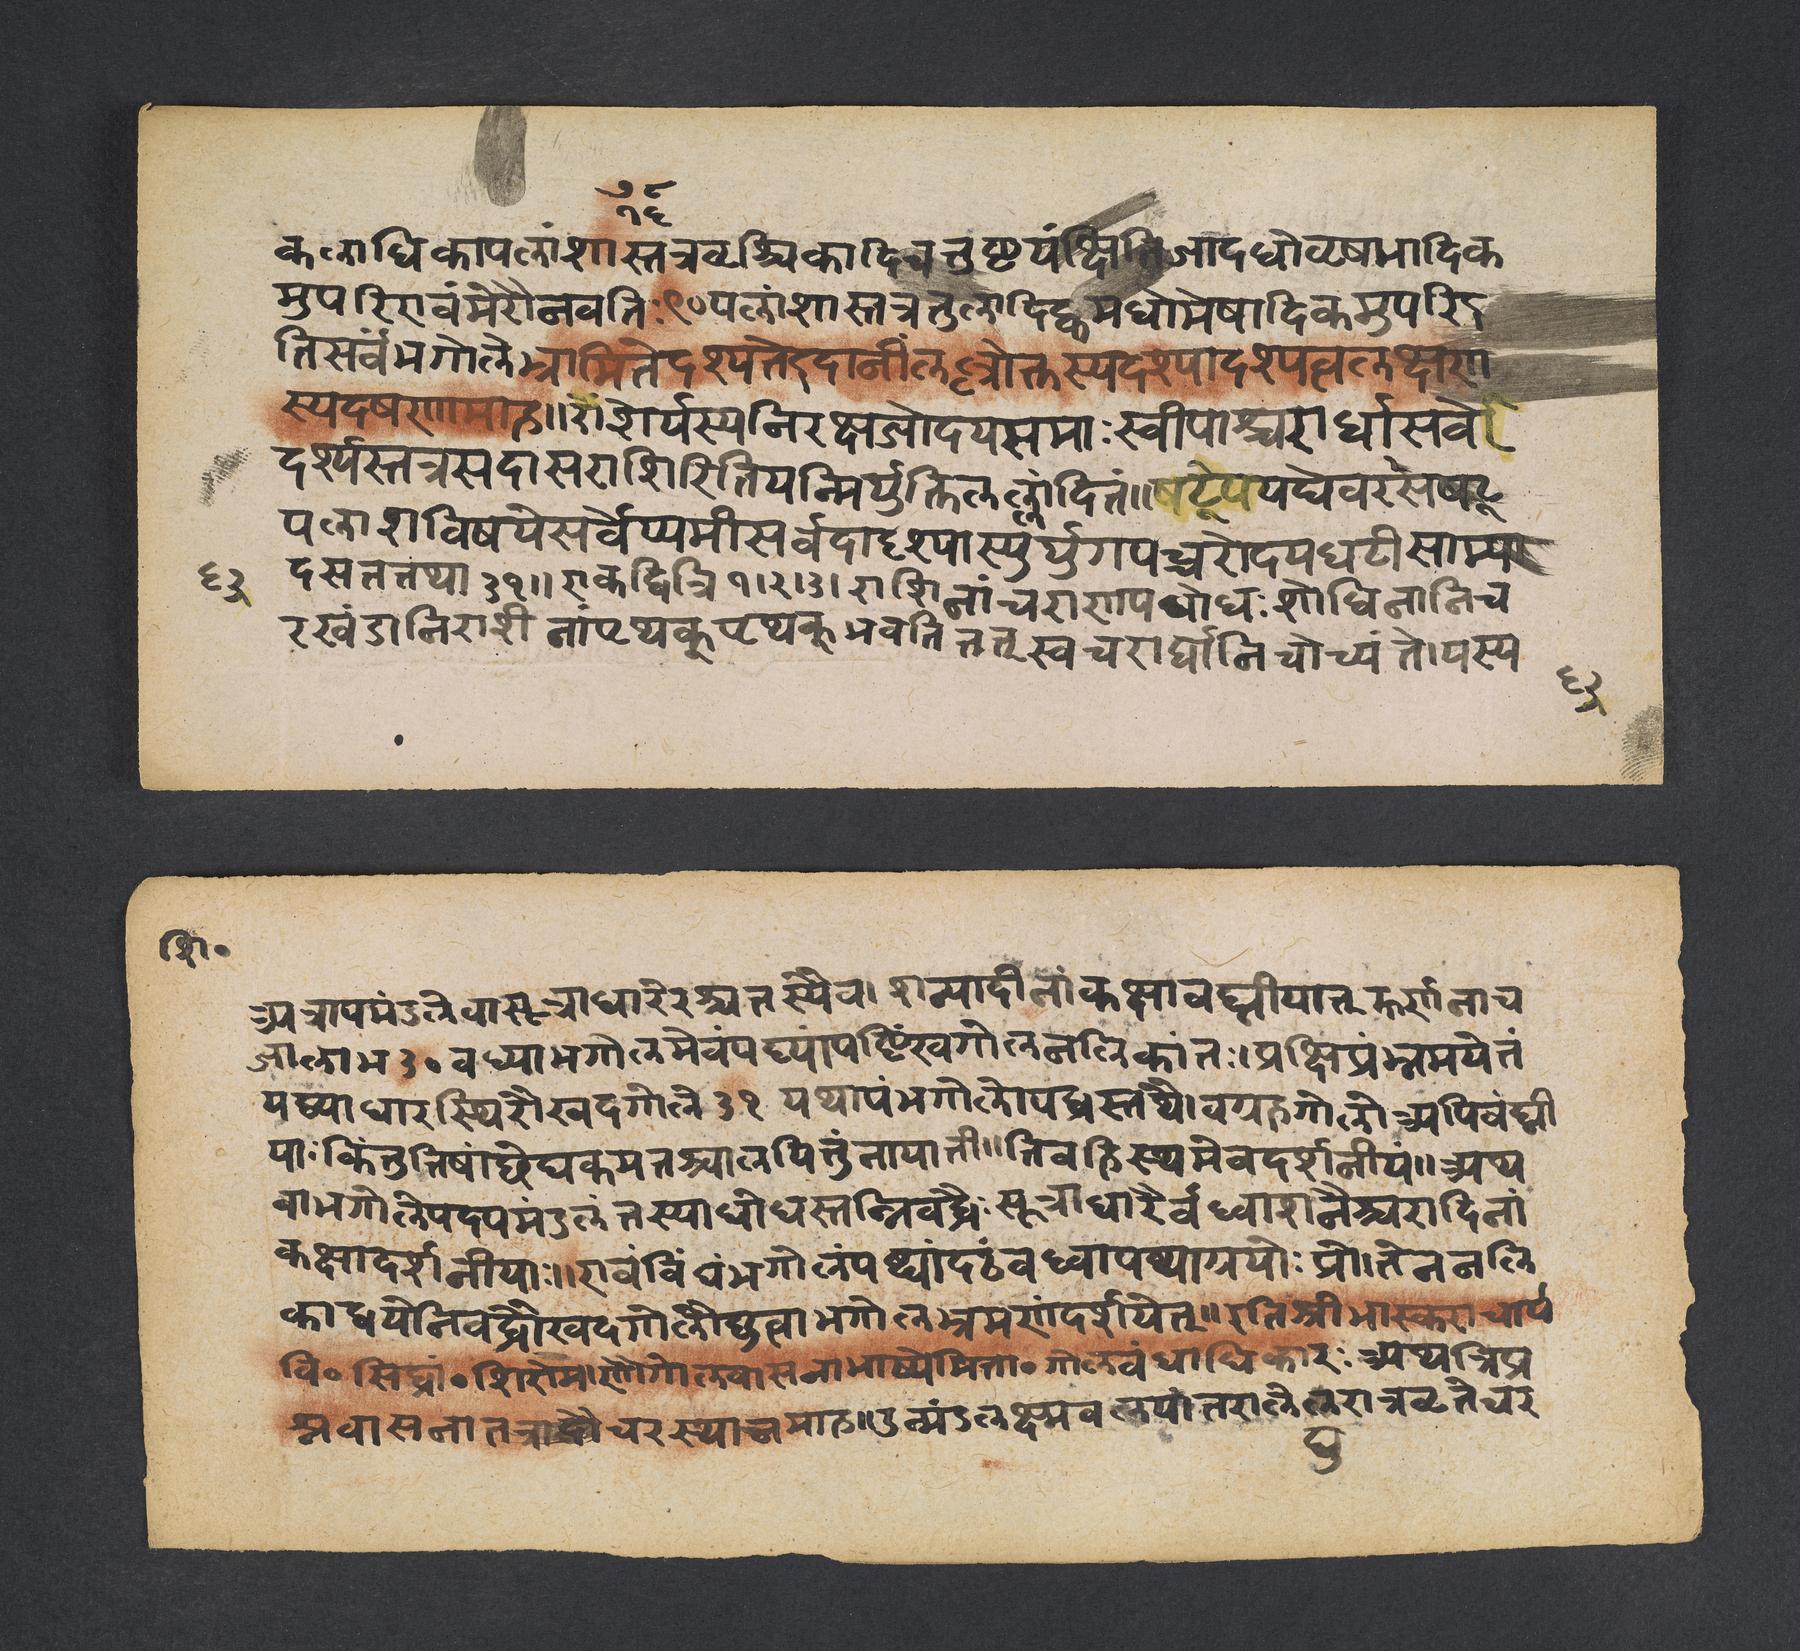 ७८
१६
कलाधिकापलांशास्तत्रवृश्चिकादिचतुष्टयंक्षितिजादधोवृषभादिक
मुपरिएवंमेरौनवतिः९०पलांशास्तत्रतुलादिट्कमधोमेषादिकमुपरिइ
तिसर्वंभगोलेभ्रामितेदृश्यतेइदानींलल्लोक्तस्यदृश्यादृश्यत्वलक्षण
स्यदूषणमाह॥राशेर्यस्यनिरक्षजोदयसमाःस्वीयाश्चरार्धासवो
दर्श्यस्तत्रसदासराशिरितियन्निर्युक्तिलल्लोदितं॥षट्पयघेवरसषट्
पलांशविषयेसर्वेप्यमीसर्वदादृश्यास्युर्युगपच्चरोदयघटीसाम्या
दसत्तत्तथा३१॥एकद्वित्रि१।२।३।राशिनांचराणाधोधःशोधितानिच
रखंडानिराशीनांपृथक्पृथक्भवतितत्स्वचरार्धानिचोच्यंते।यस्य
६३
६३
शि॰
अत्रापमंडलेवासूत्राधारेश्चतस्यैव।शन्यादीनांकक्षाबध्नीयात्ऊर्णनाच
जालाभ३०बध्वाभगोलमेवंयष्ट्यांयष्टिंखगोलनलिकांतः।प्रक्षिप्रंभ्रमयेत्तं
यष्ट्याधारस्थिरौखदृगोले३१यथायंभगोलोपद्धस्तथै।वग्रहगोलोअपिबंध्नी
याःकिंतुतेषांछेद्यकमतश्चालयितुंनायाती॥तिबहिस्थमेवदर्शनीयं॥अथ
वाभगोलेपदपमंडलंतस्याधोधस्तन्निबद्धैःसूत्राधारैर्बध्वाशनैश्चरादिनां
कक्षादर्शनीयाः॥एवंविधंभगोलंयष्ट्यांदृढंबध्वायष्ट्याग्रयोःप्रो।तेननलि
काद्वयेनिबद्धौखदृगोलौधृत्वाभगोलभ्रमणंदर्शयेत्॥इतिश्रीभास्कराचार्य
वि॰सिद्धां॰शिरोम।णौगोलवासनाभाष्येमिता॰गोलबंधाधिकारः॰अथत्रिप्र
श्नवासनातत्रादौचरस्थाजमाह॥उन्मंडलक्ष्मवलयांतरालेद्युरात्रवृतेचर
द्यु